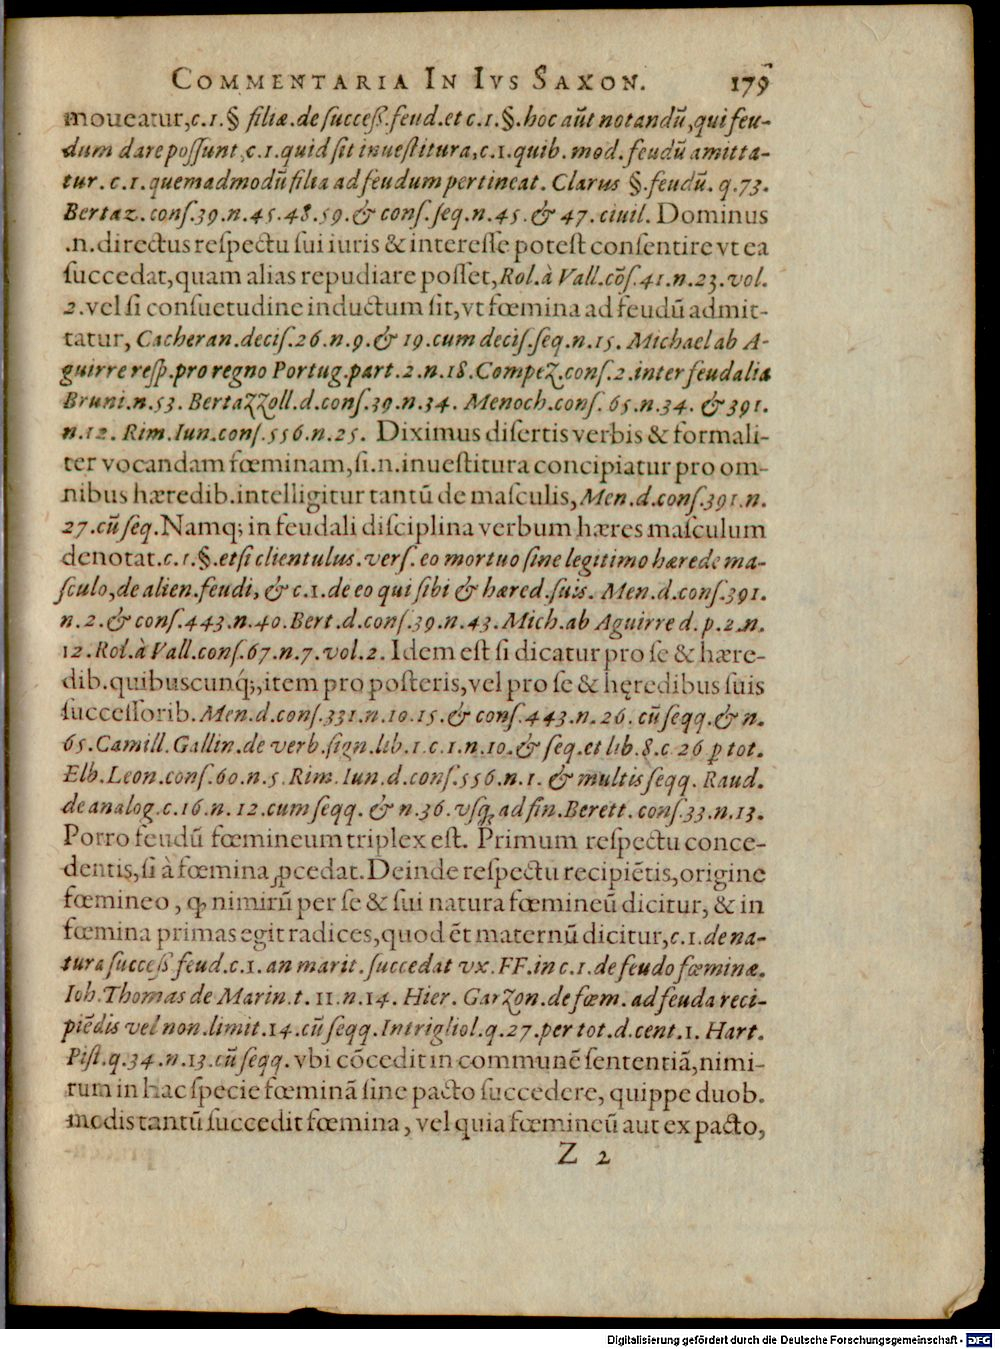 COMMENTARIA IN IVS SAXON. 179
moueatur,c.1.§ filiæ.de succeß.feud.et c.1.§.hoc aūt notandū,qui feu-
dum dare possunt,c.1.quid sit inuestitura,c.1.quib.mod.feudū amitta-
tur. c.1.quemadmodū filia ad feudum pertineat. Clarus §.feudū. q.73.
Bertaz. conſ.39.n.45.48.59.& conſ.ſeq.n.45.& 47. ciuil. Dominus
.n.directus reſpectu ſui iuris & intereſſe poteſt conſentire vt ea
ſuccedat,quam alias repudiare poſſet,Rol.à Vall.cōſ.41.n.23.vol.
2.vel ſi conſuetudine inductum ſit,vt fœmina ad feudū admit-
tatur, Cacheran.deciſ.26.n.9.& 19.cum deciſ.ſeq.n.15. Michael ab A-
guirre reſp.pro regno Portug.part.2.n.18.Compez.conſ.2.inter feudalia
Bruni.n.53. Bertazzoll.d.conſ.39.n.34. Menoch.conſ.65.n.34. & 391.
n.12. Rim.Iun.conſ.556.n.25. Diximus diſertis verbis & formali-
ter vocandam fœminam,ſi.n.inueſtitura concipiatur pro om-
nibus hæredib.intelligitur tantū de maſculis,Men.d.conſ.391.n.
27.cū ſeq.Namq; in feudali diſciplina verbum hæres maſculum
denotat.c.1.§.etſi clientulus.verſ.eo mortuo ſine legitimo hærede ma-
ſculo,de alien.feudi, & c.1.de eo qui ſibi & hæred.ſuis. Men.d.conſ.391.
n.2.& conſ.443.n.40.Bert.d.conſ.39.n.43.Mich.ab Aguirre d.p.2.n.
12.Rol.à Vall.conſ.67.n.7.vol.2. Idem eſt ſi dicatur pro ſe & hære-
dib.quibuscunq́;,item pro poſteris,vel pro ſe & hęredibus ſuis
ſucceſſorib.Men.d.conſ.331.n.10.15.& conſ.443.n.26.cū ſeqq.& n.
65.Camill.Gallin.de verb.ſign.lib.1.c.1.n.10.& ſeq.et lib.8.c.26 ꝑ tot.
Elb.Leon.conſ.60.n.5.Rim.Iun.d.conſ.556.n.1. & multis ſeqq. Raud.
de analog.c.16.n.12.cum ſeqq. & n.36.vſq; ad fin.Berett.conſ.33.n.13.
Porro feudū fœmineum triplex eſt. Primum reſpectu conce-
dentis,ſi à fœmina ꝓcedat.Deinde reſpectu recipiētis,origine
fœmineo, ꝙ nimirū per ſe & ſui natura fœmineū dicitur, & in
fœmina primas egit radices,quod ēt maternū dicitur,c.1.de na-
tura ſucceß.feud.c.1.an marit.ſuccedat vx.FF.in c.1.de feudo fœminæ.
Ioh.Thomas de Marin.t.11.n.14. Hier.Garzon.de fœm.ad feuda reci-
piēdis vel non.limit.14.cū ſeqq.Intrigliol.q.27.per tot.d.cent.1. Hart.
Piſt.q.34.n.13.cū ſeqq. vbi cōcedit in communē ſententiā,nimi-
rum in hac ſpecie fœminā ſine pacto ſuccedere, quippe duob.
modis tantū ſuccedit fœmina, vel quia fœmineū aut ex pacto,
Z 2
Digitalisierung gefördert durch die Deutsche Forschungsgemeinschaft - DFG